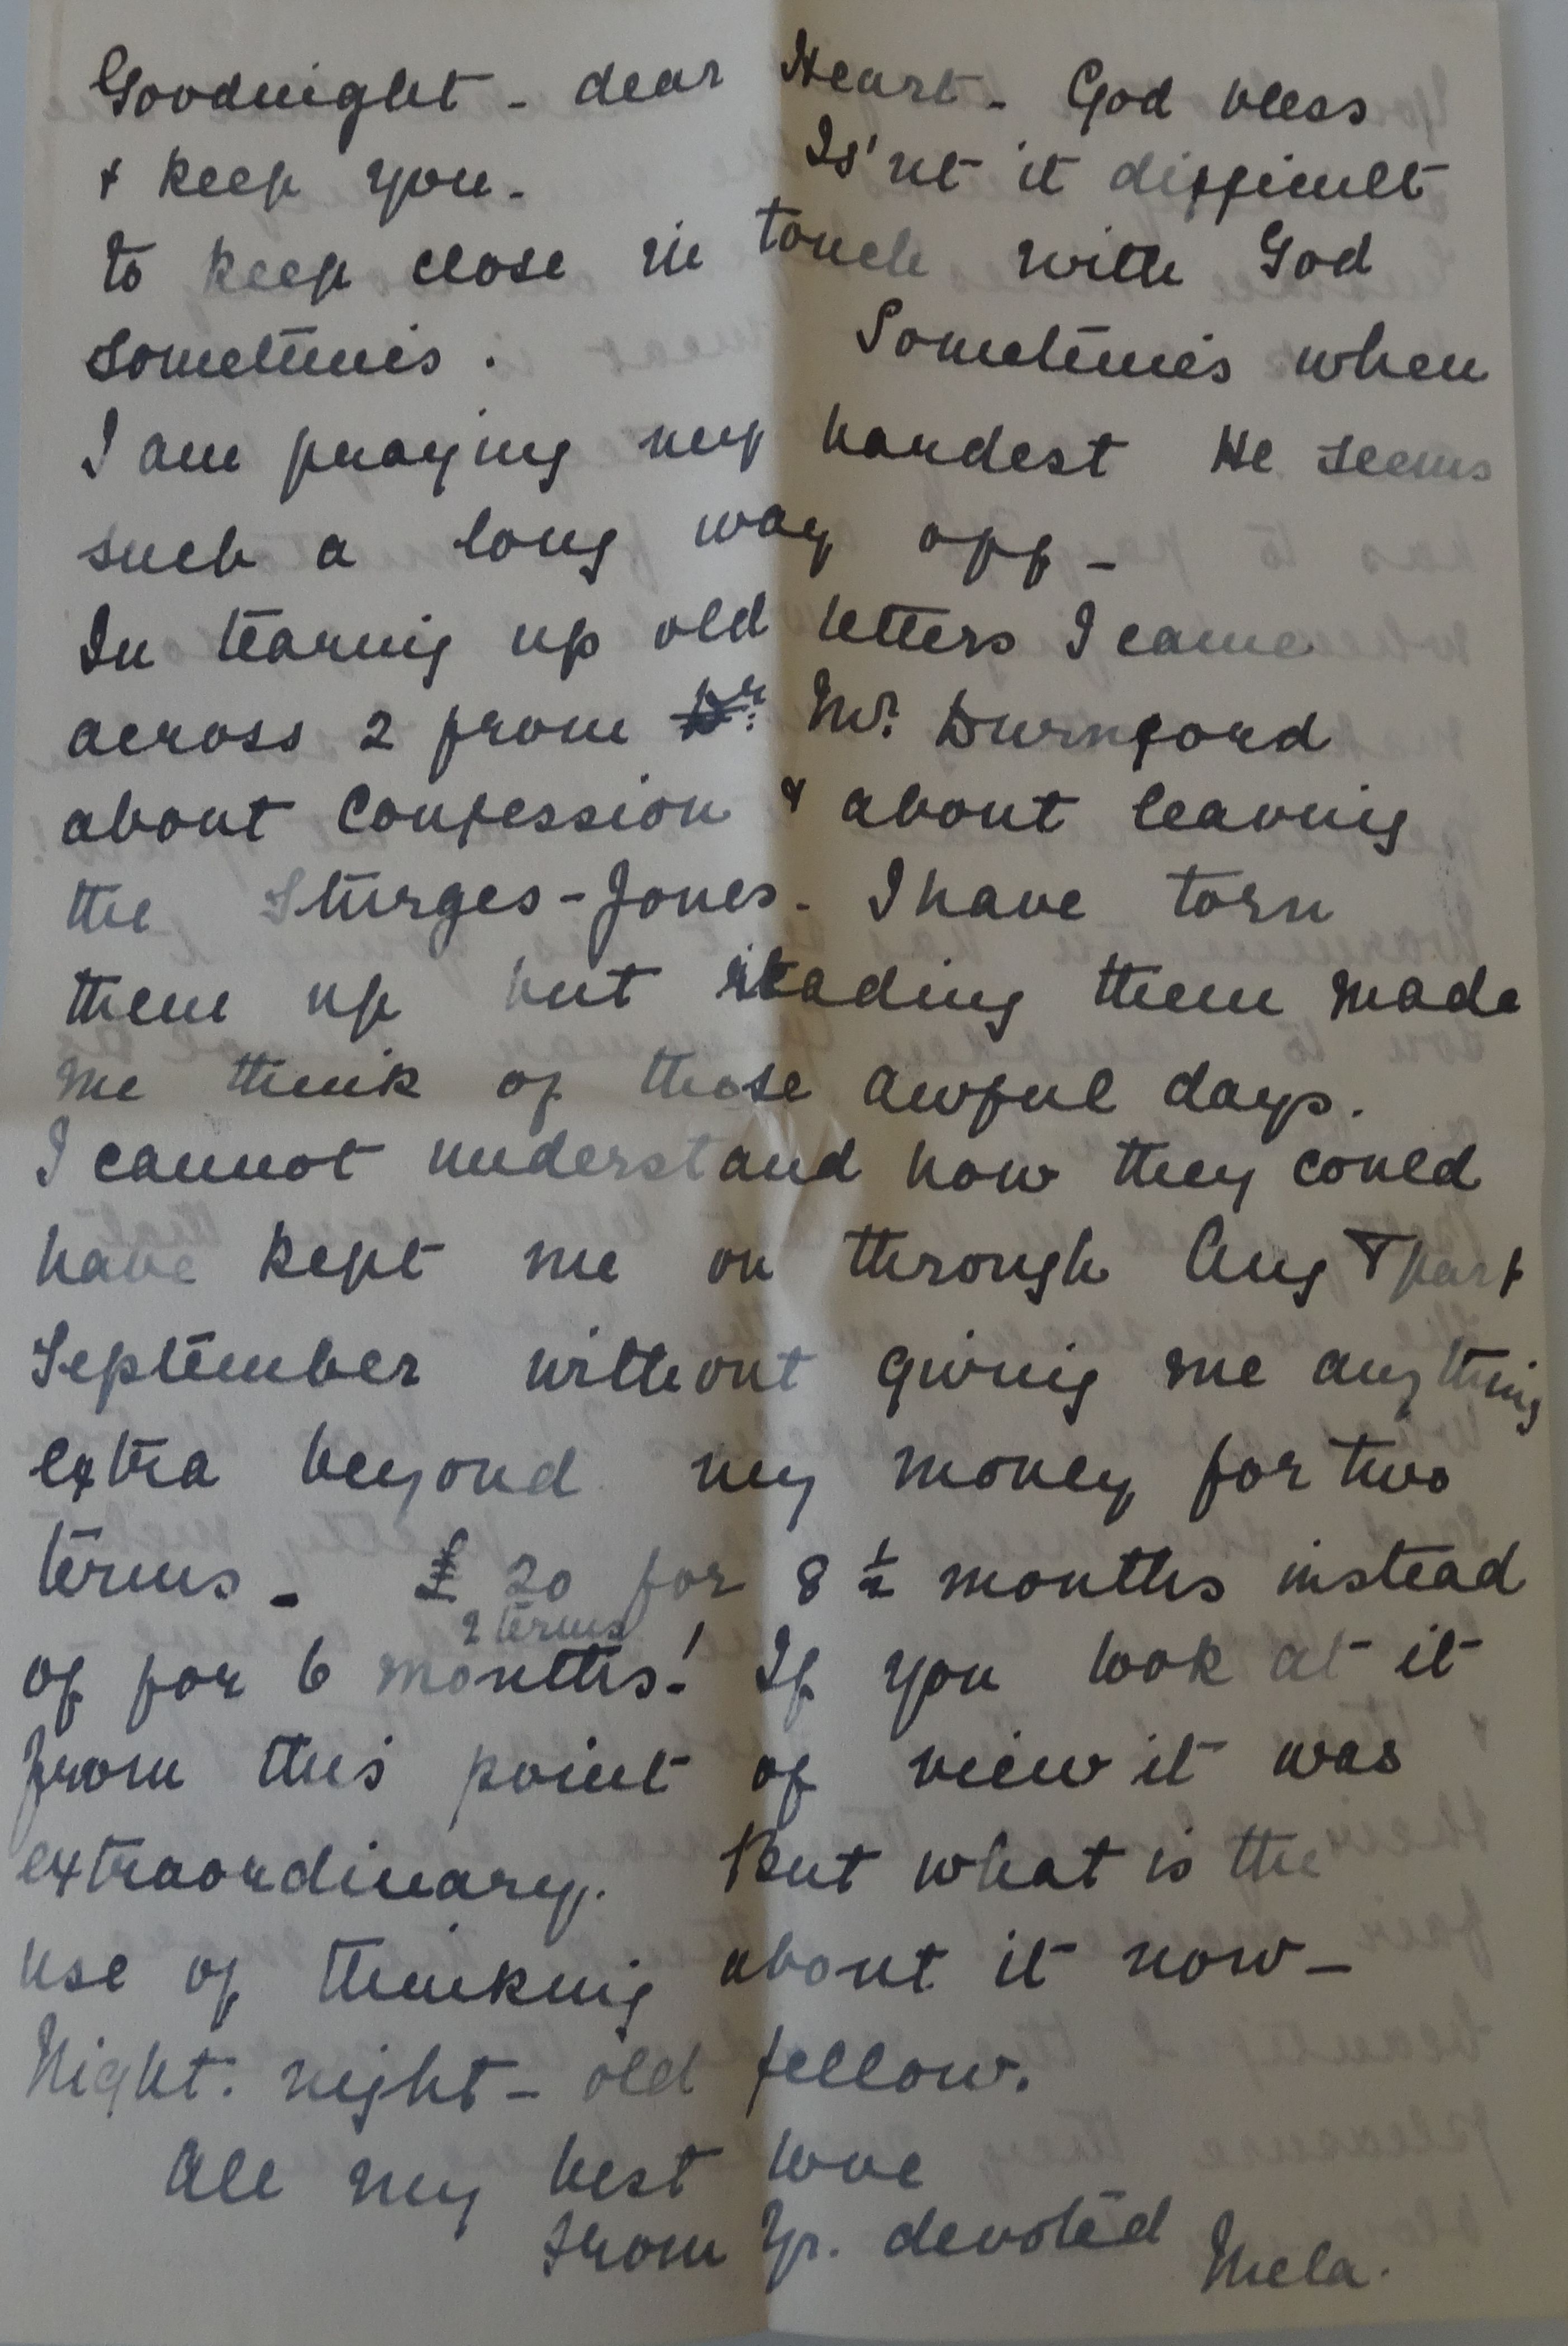 Goodnight - dear Heart - God bless
& keep you - Is'nt it difficult
to keep close in touch with God
sometimes. Sometimes when
I am praying my hardest He seems
such a long way off -
In tearing up old letters I came
across 2 from Dr. Mr. Durnford
about Confession & about leaving
the Sturges-Jones. I have torn
them up but reading them made
me think of those awful days.
I cannot understand how they could
have kept me on through Aug & part
September without giving me anything
extra beyond my money for two
terms - £20 for 8 ½ months instead
2 terms
of for 6 months! If you look at it
from this point of view it was
extraordinary. But what is the
use of thinking about it now -
Night. night - old fellow.
All my best love
from Yr. devoted Mela.